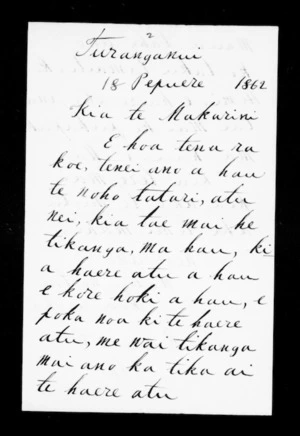 2
Turanganui
18 Pepuere 1862
Kia te Makarini
E hoa tena ra
koe, tenei ano a hau
te noho tatari, atu
nei, kia tae mai he
tikanga, ma hau, ki
a haere atu a hau
e kore hoki a hau, e
poka noa ki te haere
atu, me wai tikanga
mai ano ka tika ai
te haere atu